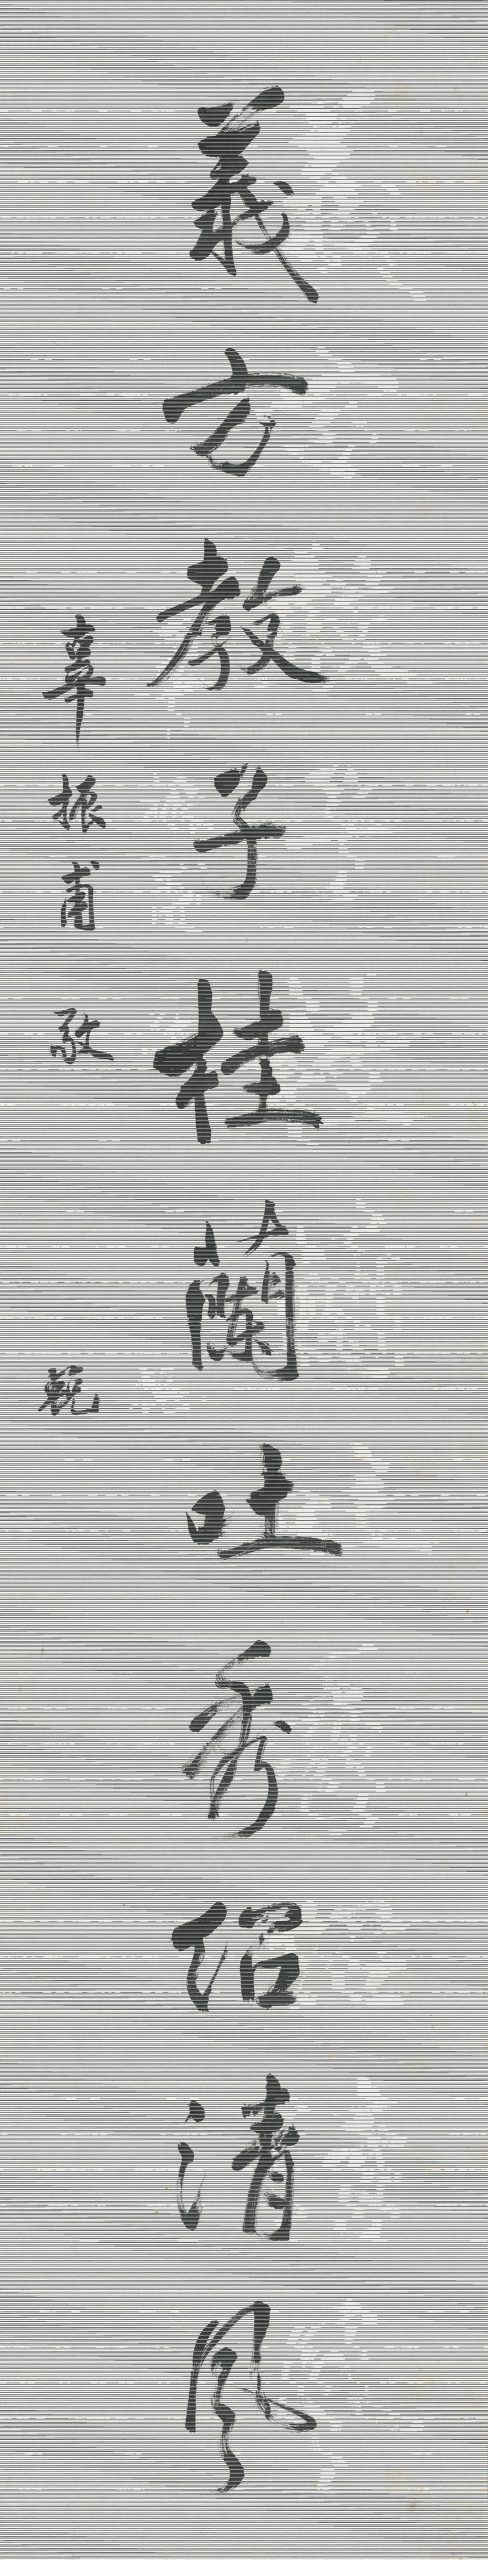 義方教子桂蘭吐秀紹清風
辜振甫敬輓